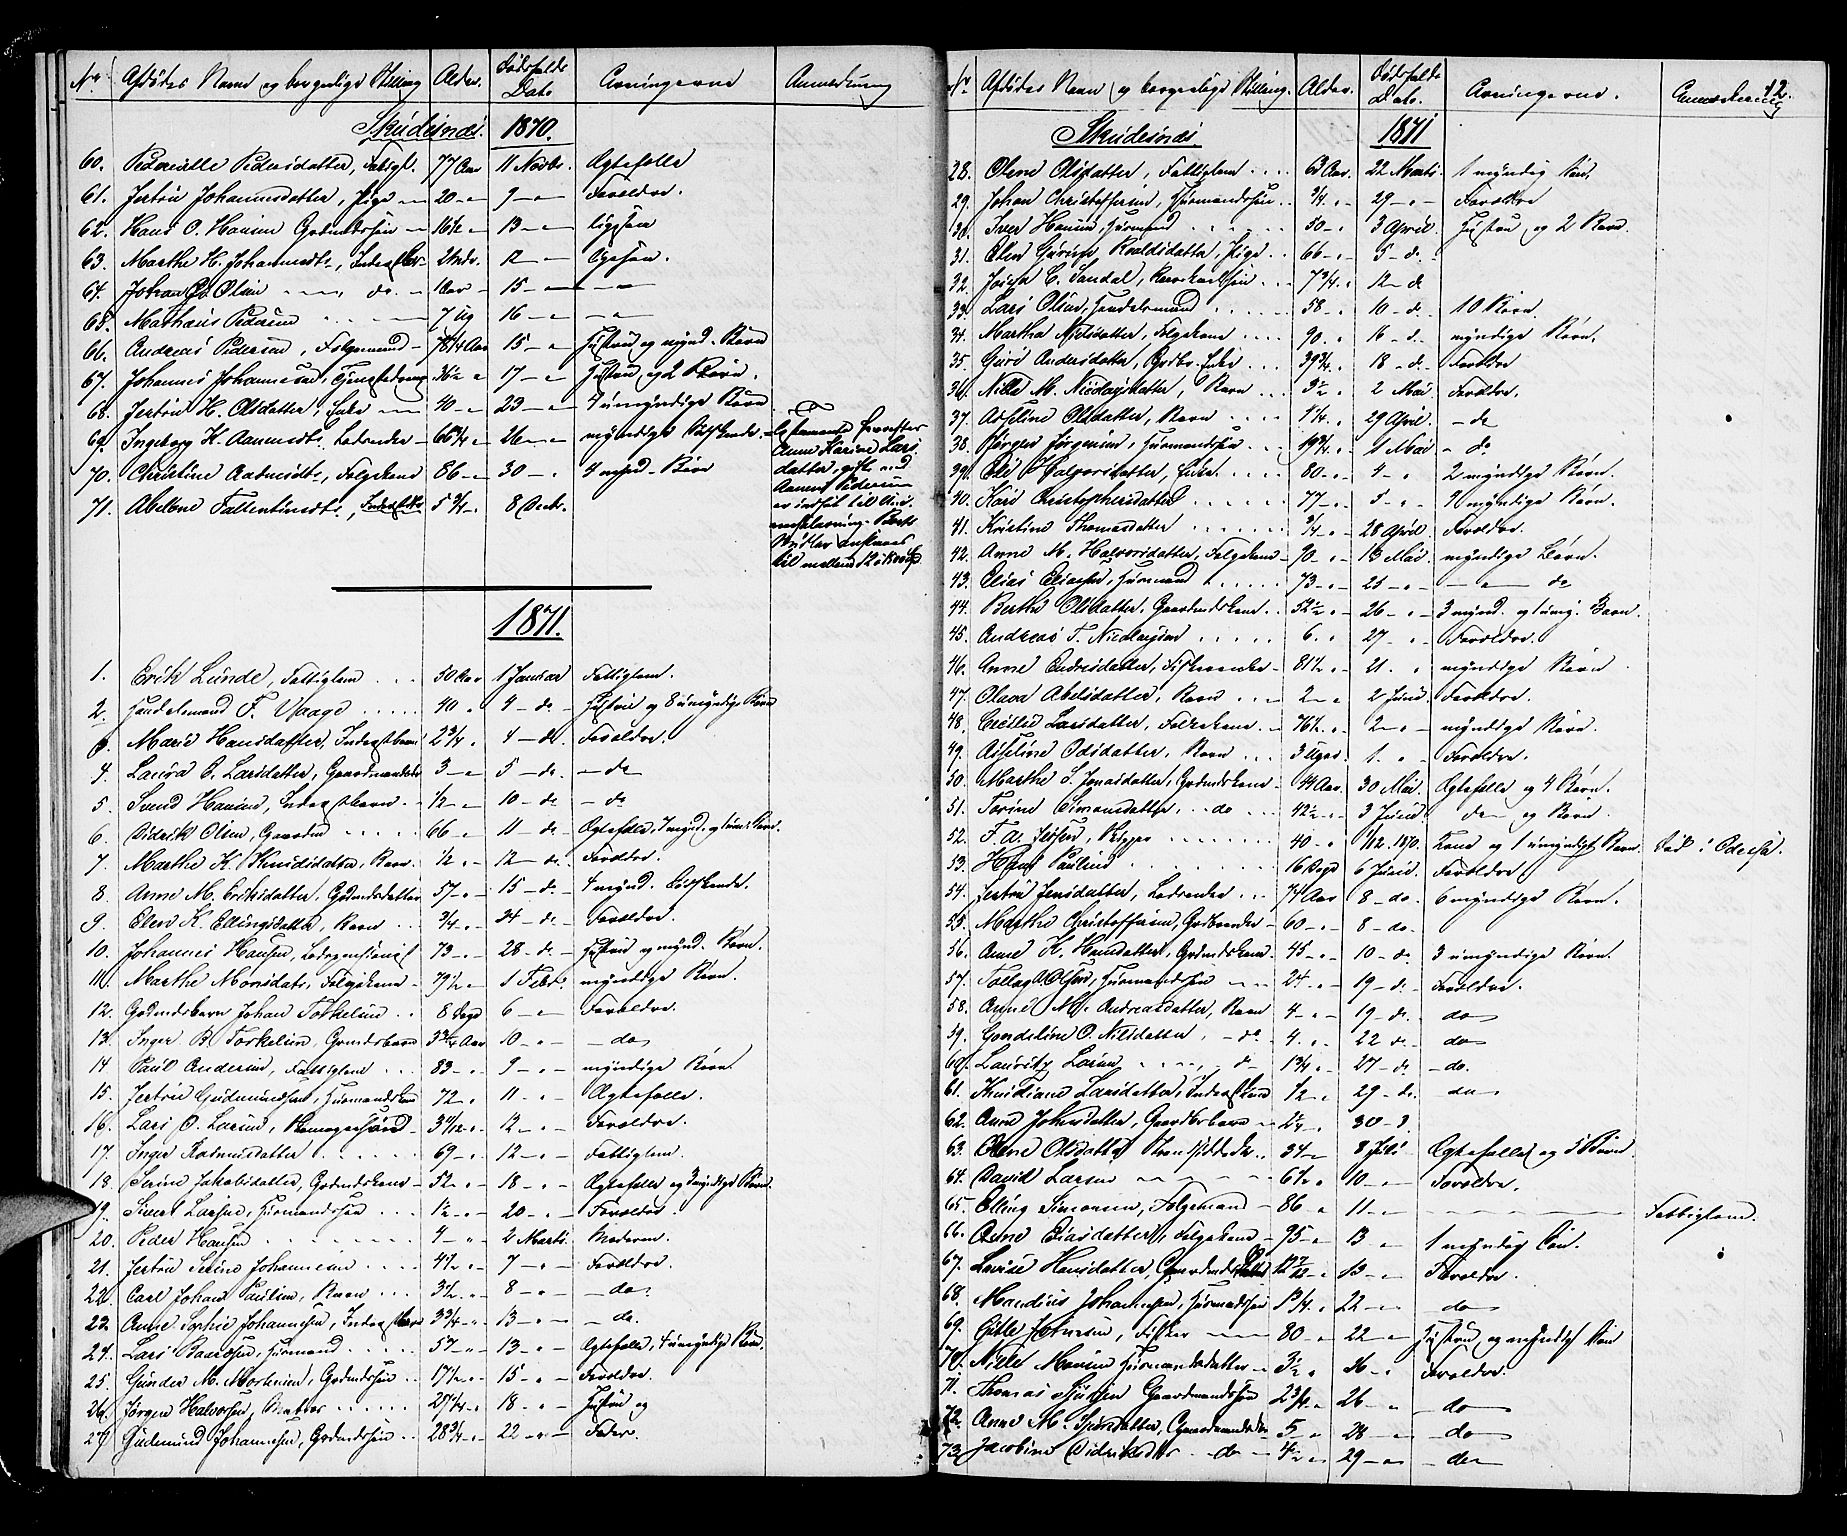 No Afdødes Navn og borgerlige Stilling Alder. Dødsfalds Dato Arvingerne Anmerkning
Skudesnes. 1870.
60. Pedersdatter, 77 Aar 11 Novbr. Ægtefælle
61. Jertru Johannesdatter, Pige 20 9 Forældre.
62. Hans O. Hansen Grdmdssøn 16½ 13
63. Marthe H. Johannesdt., 12
64. Johan Olsen do. 15
65. Mathæus Pedersen 7 Ug 16
66. Andreas Pedersen, Folgemand 78¼ Aar 15 Hustru og mynd. Børn
67. Johannes Johannesen, 36½ 17 Hustru og 2 Børn.
68. Jertru H. Olsdatter, Enke 40 23 4 umyndige Børn
69. Ingeborg K. Aanensdt. 66¾ 26 myndige Søskende.
70. Christine Aadnesdt., Folgekone 86 30 4 mynd. Børn
71. Abelone Fallentinsdt., 5¾ 8 Decbr.
Testamente hvorefter
Anne Karine Lars
datter, gift med
Aanen Pedersen
er indsat til
1871.
1. Erik Lunde, Fattiglem 50 Aar 1 Januar Fattiglem.
2. Handelsmand F. Vaage 40 4 do. Hustru og 8 umyndige Børn
3. Marie Hansdatter, Inderstbarn 2¾ 4 do. Forældre.
4. Laura P. Larsdatter, 3 5 do. do
5. Svend Hansen, Inderstbarn ½ 10 do do
6. Didrik Olsen, Gaardmd 66 11 do. Ægtefælle, mynd. og umd. Børn.
7. Marthe K. Knudsdatter, Barn ½ 12 do. Forældre.
8. Anne M. Eriksdatter, Grdmdsdatter 57 15 do. 4 mynd. Søskende.
9. Elen K. Ellingsdatter, Barn ¾ 24 do. Forældre.
10. Johannes Hansen, 73 28 do. Hustru og mynd. Børn.
11. Marthe Monsdatr., Folgekone 79½ 1 Febr. myndige Børn.
12. Grdmdsbarn Johan Torkelsen 8 Dage 6 Forældre.
13. Inger B. Torkelsen, Grmdsbarn 3¾ Aar 10 do
14. Paul Andersen, Fattiglem 83 9 myndige Børn.
15. Jertru Gudmundsen, Husmandskone 72 11 Ægtefælle.
16. Lars O. Larsen, 12 Forældre.
17. Inger Rasmusdatter 69 12 Fattiglem.
18. Serine Jakobsdatter, Grdmdskone 52 18 Ægtefælle og 3 myndige Børn.
19. Sivert Larsen, Husmandssøn 1½ 20 Forældre.
20. Peder Hansen 4 2 Marts. Moderen.
21. Jertru Serine Johannesen 4½ 7 Forældre.
22. Carl Johan Paulsen, Barn 3½ 8 do.
23. Anne Sophie Johannesen, Inderstbarn 3¾ 13 do.
24. Lars Baardsen, Husmand 57 13 Ægtefælle, 4 umyndige Børn.
25. Gunder M. Mortensen, Grdmdssøn 17½ 15 Forældre.
26. Jørgen Halvorsen, 18 Hustru og
27. Gudmund Johannesen, Grdmdssøn 28¾ 22 Fader.
No Afdødes Navn og borgerlige Stilling. Alder. Dødsfalds Dato. Arvingerne. Anmerkning 12.
Skudesnes. 1871
28. Olene Olsdatter, Fattiglem 63 Aar. 22 Marts. 1 myndig Søn.
29. Johan Christoffersen, Husmandssøn ¾ 29 Forældre
30. Iver Hansen, Husmand 50 3 April Hustru og 2 Børn.
31. Elen Gurine Roaldsdatter, Pige 66 5 do.
32. C. Sandal, 7¾ 12 do
33. Lars Olsen, Handelsmand 58 10 do. 10 Børn.
34. Martha Nielsdatter, Folgekone 90 16 do. myndige Børn.
35. Guri Andersdatter, Enke 39¾ 18 do. Forældre
36. Nille M. Nicolaysdatter, Barn 3½ 2 Mai Forældre.
37. Adseline Olsdatter, Barn 1¼ 29 April. do
38. Jørgen Jørgensen, Husmandssøn 19¾ 1 Mai do
39. Eli Halvorsdatter, Enke 80 4 2 myndige Børn.
40. Kari Christophersdatter 77 5 myndige Børn.
41. Kristine Thomasdatter ¾ 28 April Forældre.
42. Anne M. Halvorsdatter, Folgekone 90 13 Mai myndige Børn.
43. Elias Eliassen, Husmand 73 21 do
44. Berthe Olsdatter, Gaardmdskone 52½ 26 3 mynd. og umy. Børn.
45. Andreas T. Nicolaysen 6 27 Forældre.
46. Anne Endresdatter, 81½ 21 myndige Børn
47. Olava Abelsdatter, Barn 2 2 Juni Forældre.
48. Larsdatter, 76½ 2 myndige Børn.
49. Adseline Odsdatter, Barn 3 Uger 1. Forældre.
50. Marthe S. Jonasdatter, Grdmdskone 44 Aar 30 Mai Ægtefælle og 4 Børn.
51. Torine Simonsdatter, do 42½ 3 Juni do og Børn.
52. F. A. 40 1/12. 1870. Kone og 1 umyndigt Barn. Død i Odessa.
53. Hans Paulsen 16 Dage 6 Juni Forældre.
54. Jertru Jensdatter, 74 Aar 8 do 6 myndige Børn.
55. Marthe Christoffersen, 60 8 do.
56. Anne K. Hansdatter, Grdmdskone 45 10 do. 3 umyndige Børn.
57. Tollag O. Olsen, Husmandssøn 24 19 do. Forældre.
58. Anne M. Andreasdatter, Barn 4 19 do. do
59. Gondeline O. Nilsdatter, do 4 22 do. do
60. Lauritz Larsen do 1¾ 27 do. do.
61. Kristiane Larsdatter, ½ 29 do. do
62. Anne Johnsdatter, 30
63. Olene Olsdatter, 34 8 Juli Ægtefælle og 5 Børn.
64. David Larsen 6½ 10 Forældre.
65. Elling Simonsen, Folgemand 86 11 Fattiglem.
66. Anne Eliasdatter, Folgekone 95 13 1 myndig Søn.
67. Lavise Hansdatter, 13 Forældre.
68. Mandius Johannesen, Husmandssøn 1¾ 22 do
69. Gitle Fisker 80 22 Hustru og myndigt Barn
70. Nille Hansen Husmandsdatter 3½ 26 Forældre.
71. Thomas Gaardmandssøn 2¾ 26 do
72. Anne M. 5 28 do
73. Jacobine Didriksdatter do 4½ 29 do